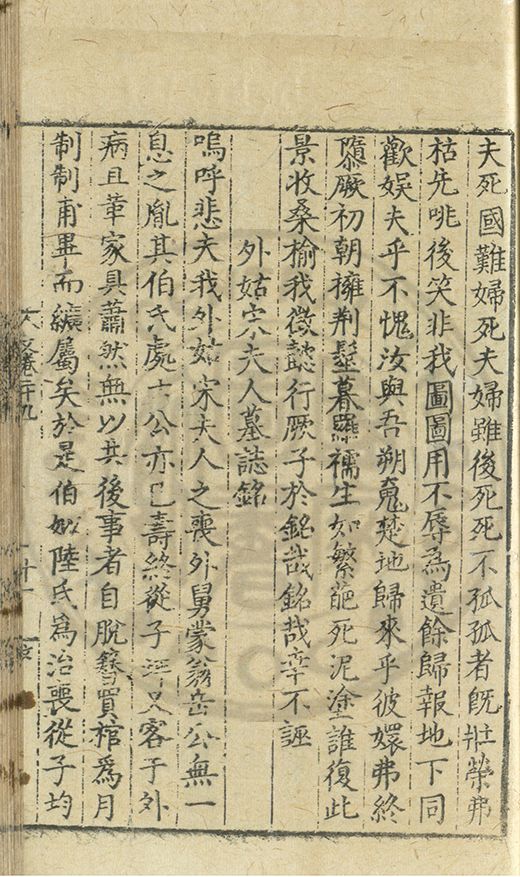 夫死國難婦死夫婦雖後死死不孤孤者旣壯榮弗
枯先咷後笑非我圖圖用不辱為遺餘歸報地下同
歡娛夫乎不愧汝與吾朔䰟楚地歸來乎彼嬛弗終
隳厥初朝擁荆髽暮羅襦生如繁葩死泥塗誰復此
景收桑榆我徵懿行厥子於銘哉銘哉幸不誣
外姑宋夫人墓誌銘
嗚呼悲夫我外姑宋夫人之喪外舅蒙翁岳公無一
息之胤其伯氏處士公亦已壽終從子坪又客于外
病且革家具蕭然無以共後事者自脫簪買棺爲月
制制甫畢而纊屬矣於是伯姒陸氏爲治喪從子均
文卷二十九
二十一